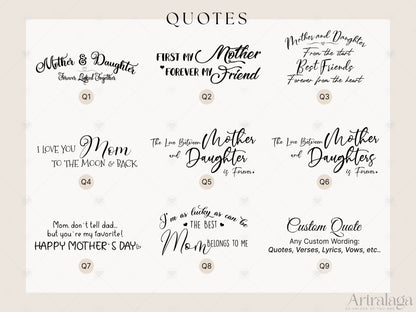 QUOTES
Mother & Daughter
Forever Linked Together
Q1
FIRST MY Mother
FOREVER MY Friend
Q2
Mother and Daughter
From the start
Best Friends
Forever from the heart
Q3
I LOVE YOU Mom
TO THE MOON & BACK
Q4
The Love Between Mother
and Daughter
is Forever.
Q5
The Love Between Mother
and Daughters
is Forever.
Q6
Mom, don't tell dad...
but you're my favorite!
HAPPY MOTHER'S DAY
Q7
I'm as lucky as can be
THE BEST
Mom BELONGS TO ME
Q8
Custom Quote
Any Custom Wording:
Quotes, Verses, Lyrics, Vows, etc..
Q9
Artralaga